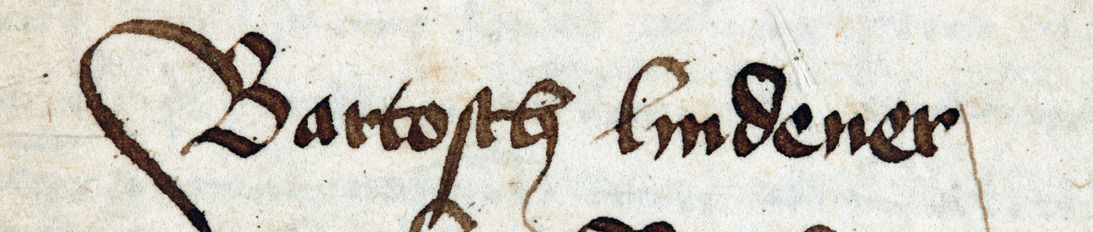 Bartosch lindener